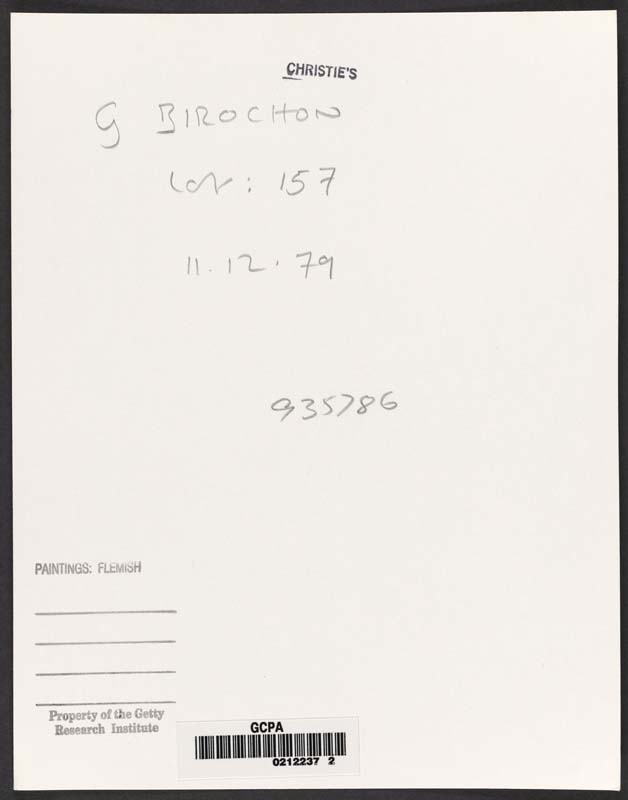 CHRISTIE'S
G BIROCHON
Lot: 157
11.12.79
935786
PAINTINGS: FLEMISH
Property of the Getty
Research Institute
GCPA
0212237 2